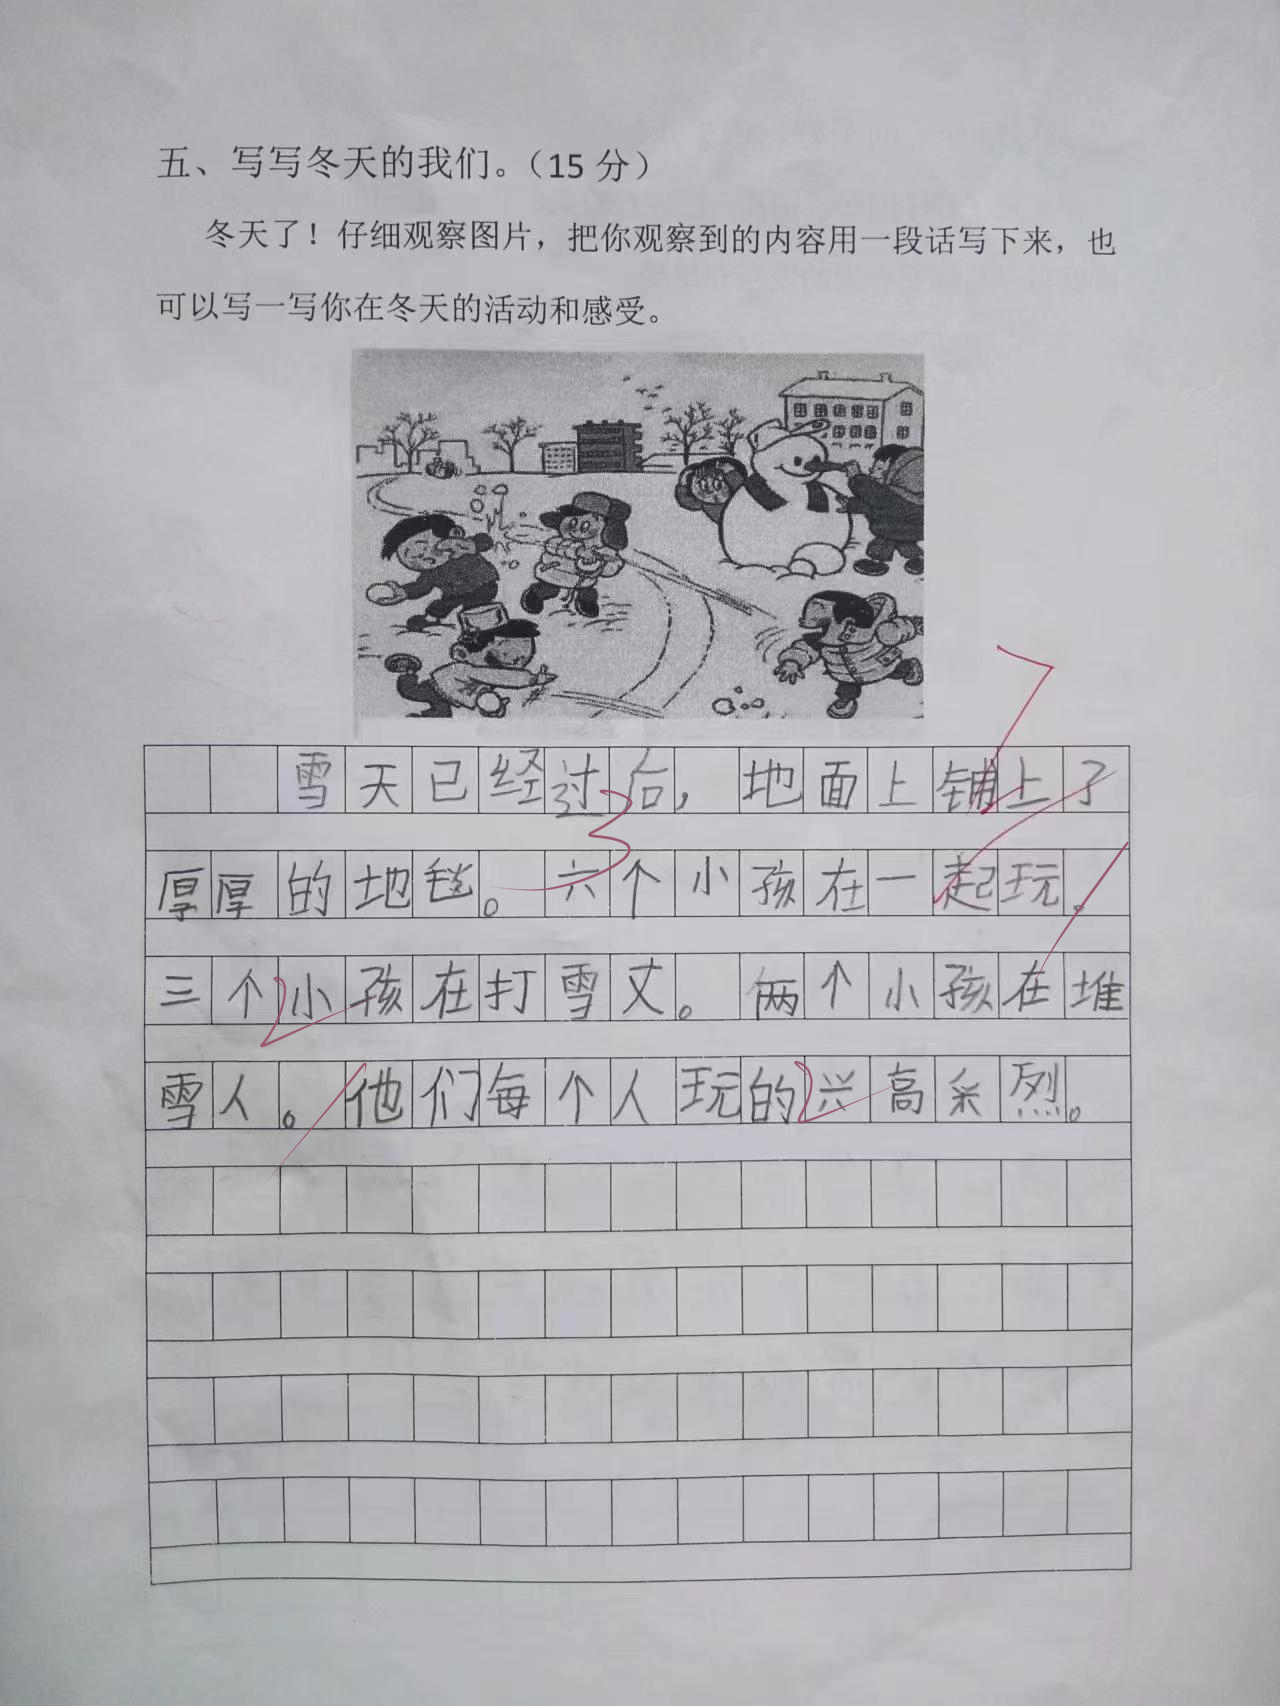 五、写写冬天的我们。（15 分）
冬天了！仔细观察图片，把你观察到的内容用一段话写下来，也
可以写一写你在冬天的活动和感受。
雪天已经过后，地面上铺上了
厚厚的地毯。六个小孩在一起玩。
三个小孩在打雪丈。两个小孩在堆
雪人。他们每个人玩的兴高采烈。